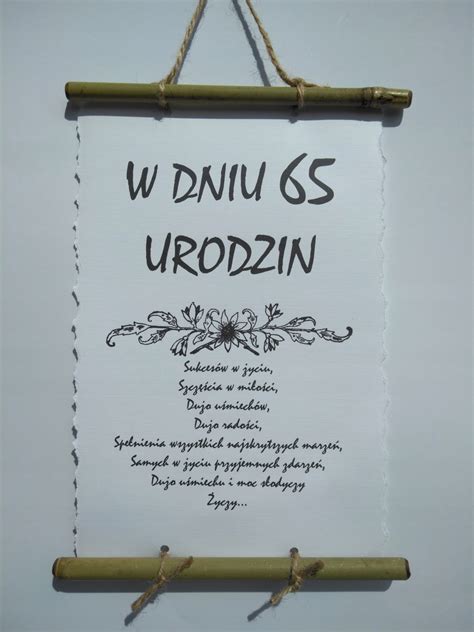 W DNIU 65
URODZIN
Sukcesów w życiu,
Szczęścia w miłości,
Dujo uśmiechów,
Dujo radości,
Spełnienia wszystkich najskrytszych marzeń,
Samych w życiu przyjemnych zdarzeń,
Dujo uśmiechu i moc słodyczy
Życzy...